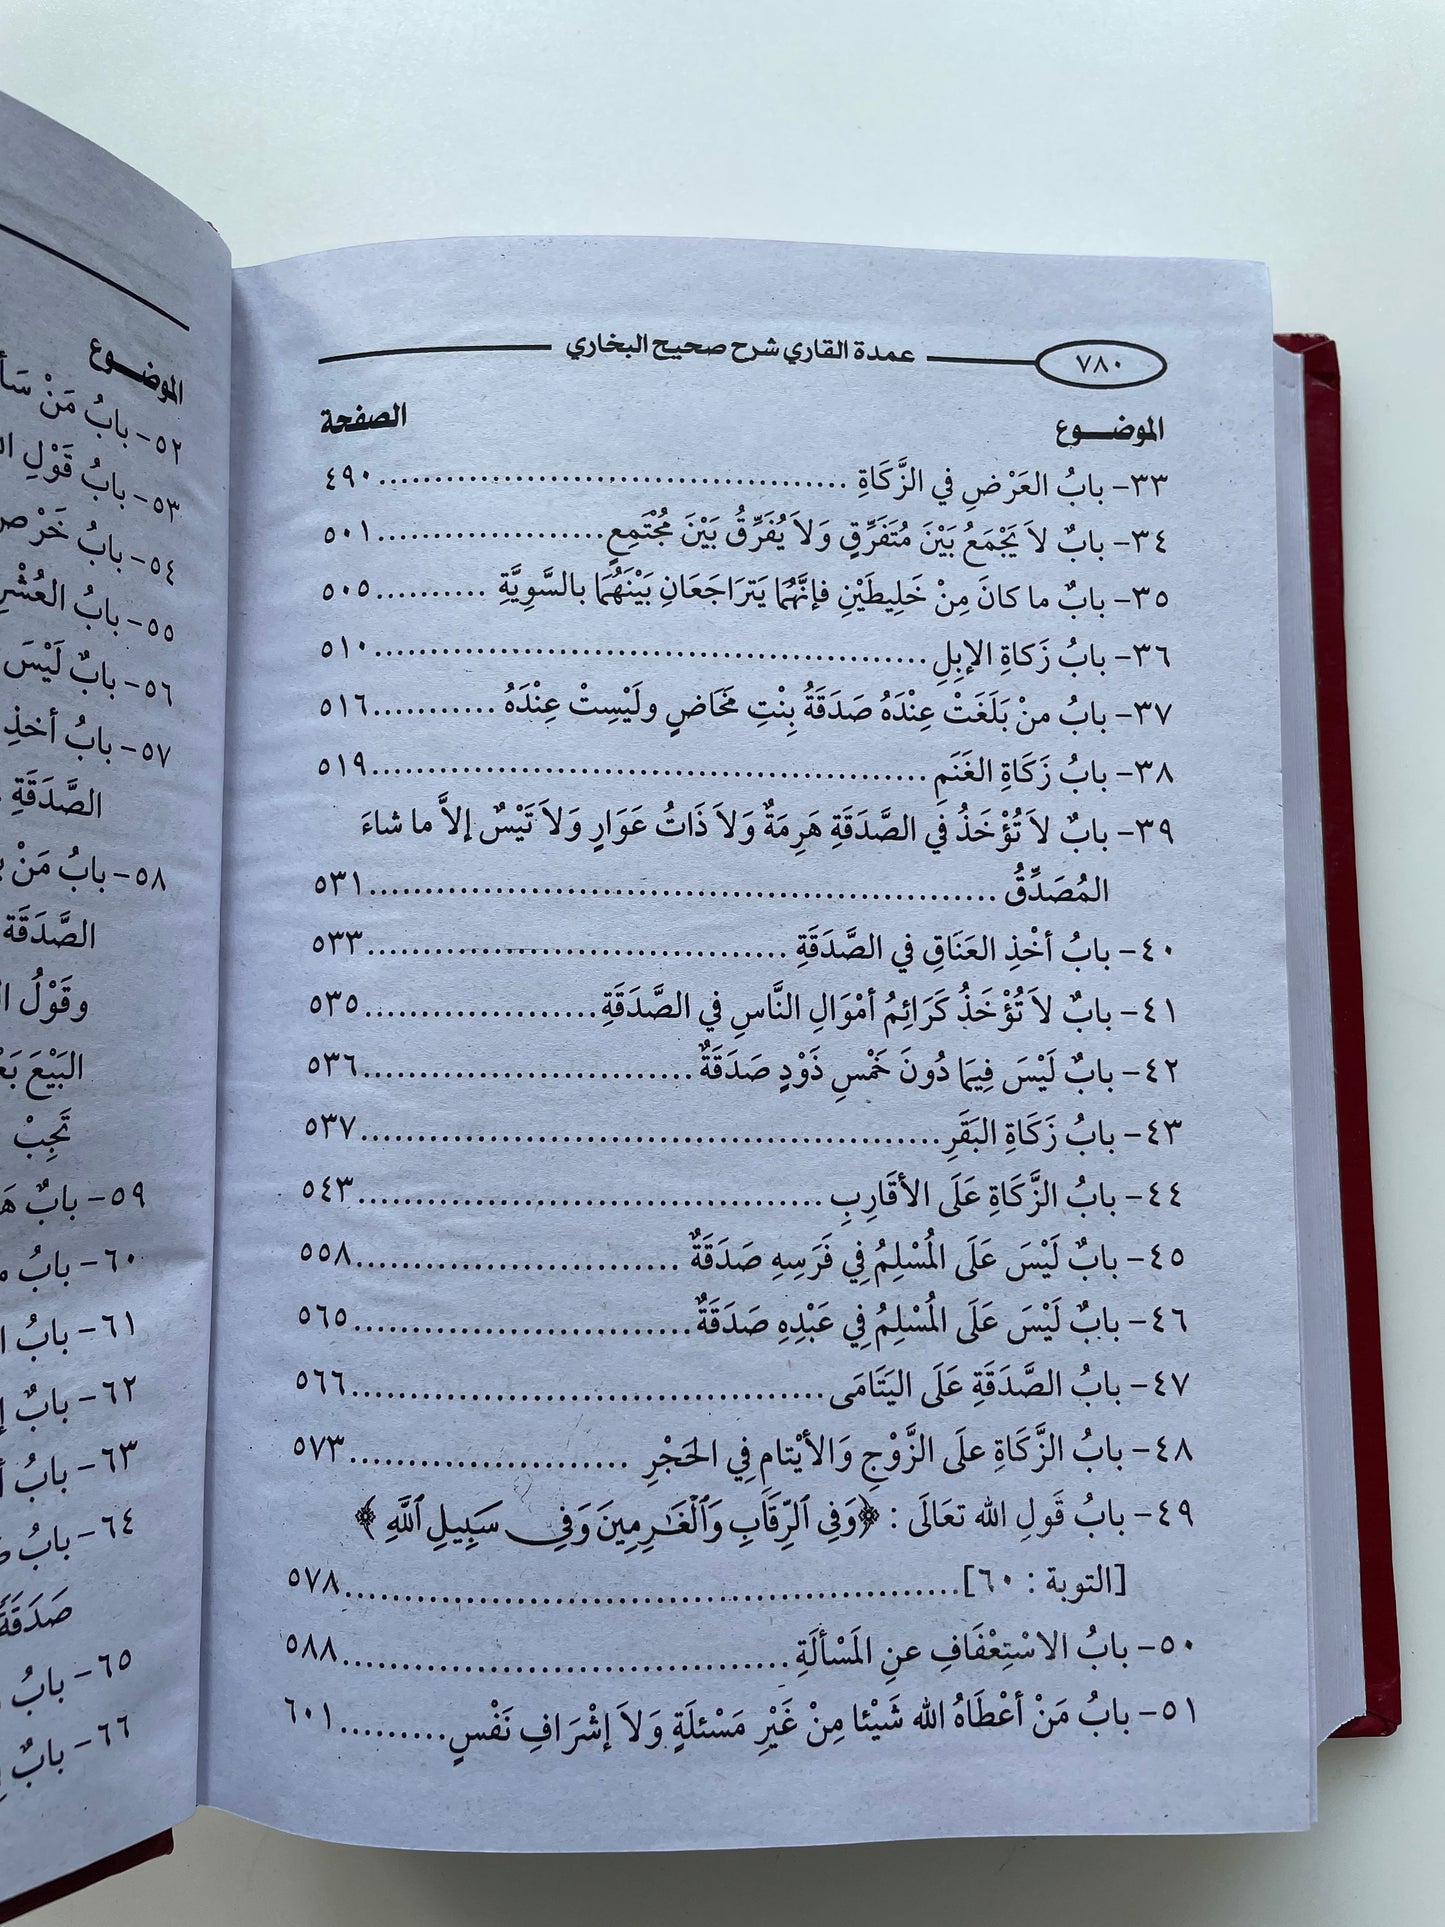 ٧٨٠ عمدة القاري شرح صحيح البخاري
الموضـــوع الصفحة
٣٣- بابُ العَرْضِ في الزَّكَاةِ ................ ٤٩٠
٣٤- بابٌ لاَ يَجْمَعُ بَيْنَ مُتَفَرِّقٍ وَلاَ يُفَرِّقُ بَيْنَ مُجْتَمِعٍ ................ ٥٠١
٣٥- بابٌ ما كانَ مِنْ خَلِيطَيْنِ فإنَّهُمَا يَتَرَاجَعَانِ بَيْنَهُمَا بالسَّوِيَّةِ .......... ٥٠٥
٣٦- بابُ زَكاةِ الإبِلِ ................ ٥١٠
٣٧- بابُ منْ بَلَغَتْ عِنْدَهُ صَدَقَةُ بِنْتِ مَخَاضٍ ولَيْسِتْ عِنْدَهُ ........... ٥١٦
٣٨- بابُ زَكَاةِ الغَنَمِ ................ ٥١٩
٣٩- بابٌ لاَ تُؤْخَذُ في الصَّدَقَةِ هَرِمَةٌ وَلاَ ذَاتُ عَوَارٍ وَلاَ تَيْسٌ إلاَّ ما شاءَ
المُصَدِّقُ ................ ٥٣١
٤٠- بابُ أخْذِ العَنَاقِ في الصَّدَقَةِ ................ ٥٣٣
٤١- بابٌ لاَ تُؤْخَذُ كَرَائِمُ أمْوَالِ النَّاسِ في الصَّدَقَةِ ................ ٥٣٥
٤٢- بابٌ لَيْسَ فِيمَا دُونَ خَمْسِ ذَوْدٍ صَدَقَةٌ ................ ٥٣٦
٤٣- بابُ زَكَاةِ البَقَرِ ................ ٥٣٧
٤٤- بابُ الزَّكَاةِ عَلَى الأقَارِبِ ................ ٥٤٣
٤٥- بابٌ لَيْسَ عَلَى المُسْلِمُ فِي فَرَسِهِ صَدَقَةٌ ................ ٥٥٨
٤٦- بابٌ لَيْسَ عَلَى المُسْلِمُ فِي عَبْدِهِ صَدَقَةٌ ................ ٥٦٥
٤٧- بابُ الصَّدَقَةِ عَلَى اليَتَامَى ................ ٥٦٦
٤٨- بابُ الزَّكَاةِ علَى الزَّوْجِ وَالأيْتامِ فِي الحَجْرِ ................ ٥٧٣
٤٩- بابُ قَولِ الله تعَالَى : ﴿وَفِي ٱلرِّقَابِ وَٱلْغَٰرِمِينَ وَفِي سَبِيلِ ٱللَّهِ﴾
[التوبة : ٦٠] ................ ٥٧٨
٥٠- بابُ الاسْتِعْفَافِ عنِ المَسْألَةِ ................ ٥٨٨
٥١- بابُ مَنْ أعْطَاهُ الله شَيْئا مِنْ غَيْرِ مَسْئلَةٍ وَلاَ إشْرَافِ نَفْسٍ .......... ٦٠١
الموضـــوع
٥٢- بابُ مَنْ
٥٣- بابُ قَوْلِ
٥٤- بابُ
٥٥- بابُ
٥٦- بابٌ لَيْسَ
٥٧- بابُ أخذِ
الصَّدَقَةِ
٥٨- بابُ مَنْ
الصَّدَقَة
وقَوْلُ
البَيْعَ
تَجِبْ
٥٩- بابٌ
٦٠- بابُ
٦١- بابُ
٦٢- بابٌ
٦٣- بابُ
٦٤- بابُ
٦٥- بابُ
٦٦- بابٌ